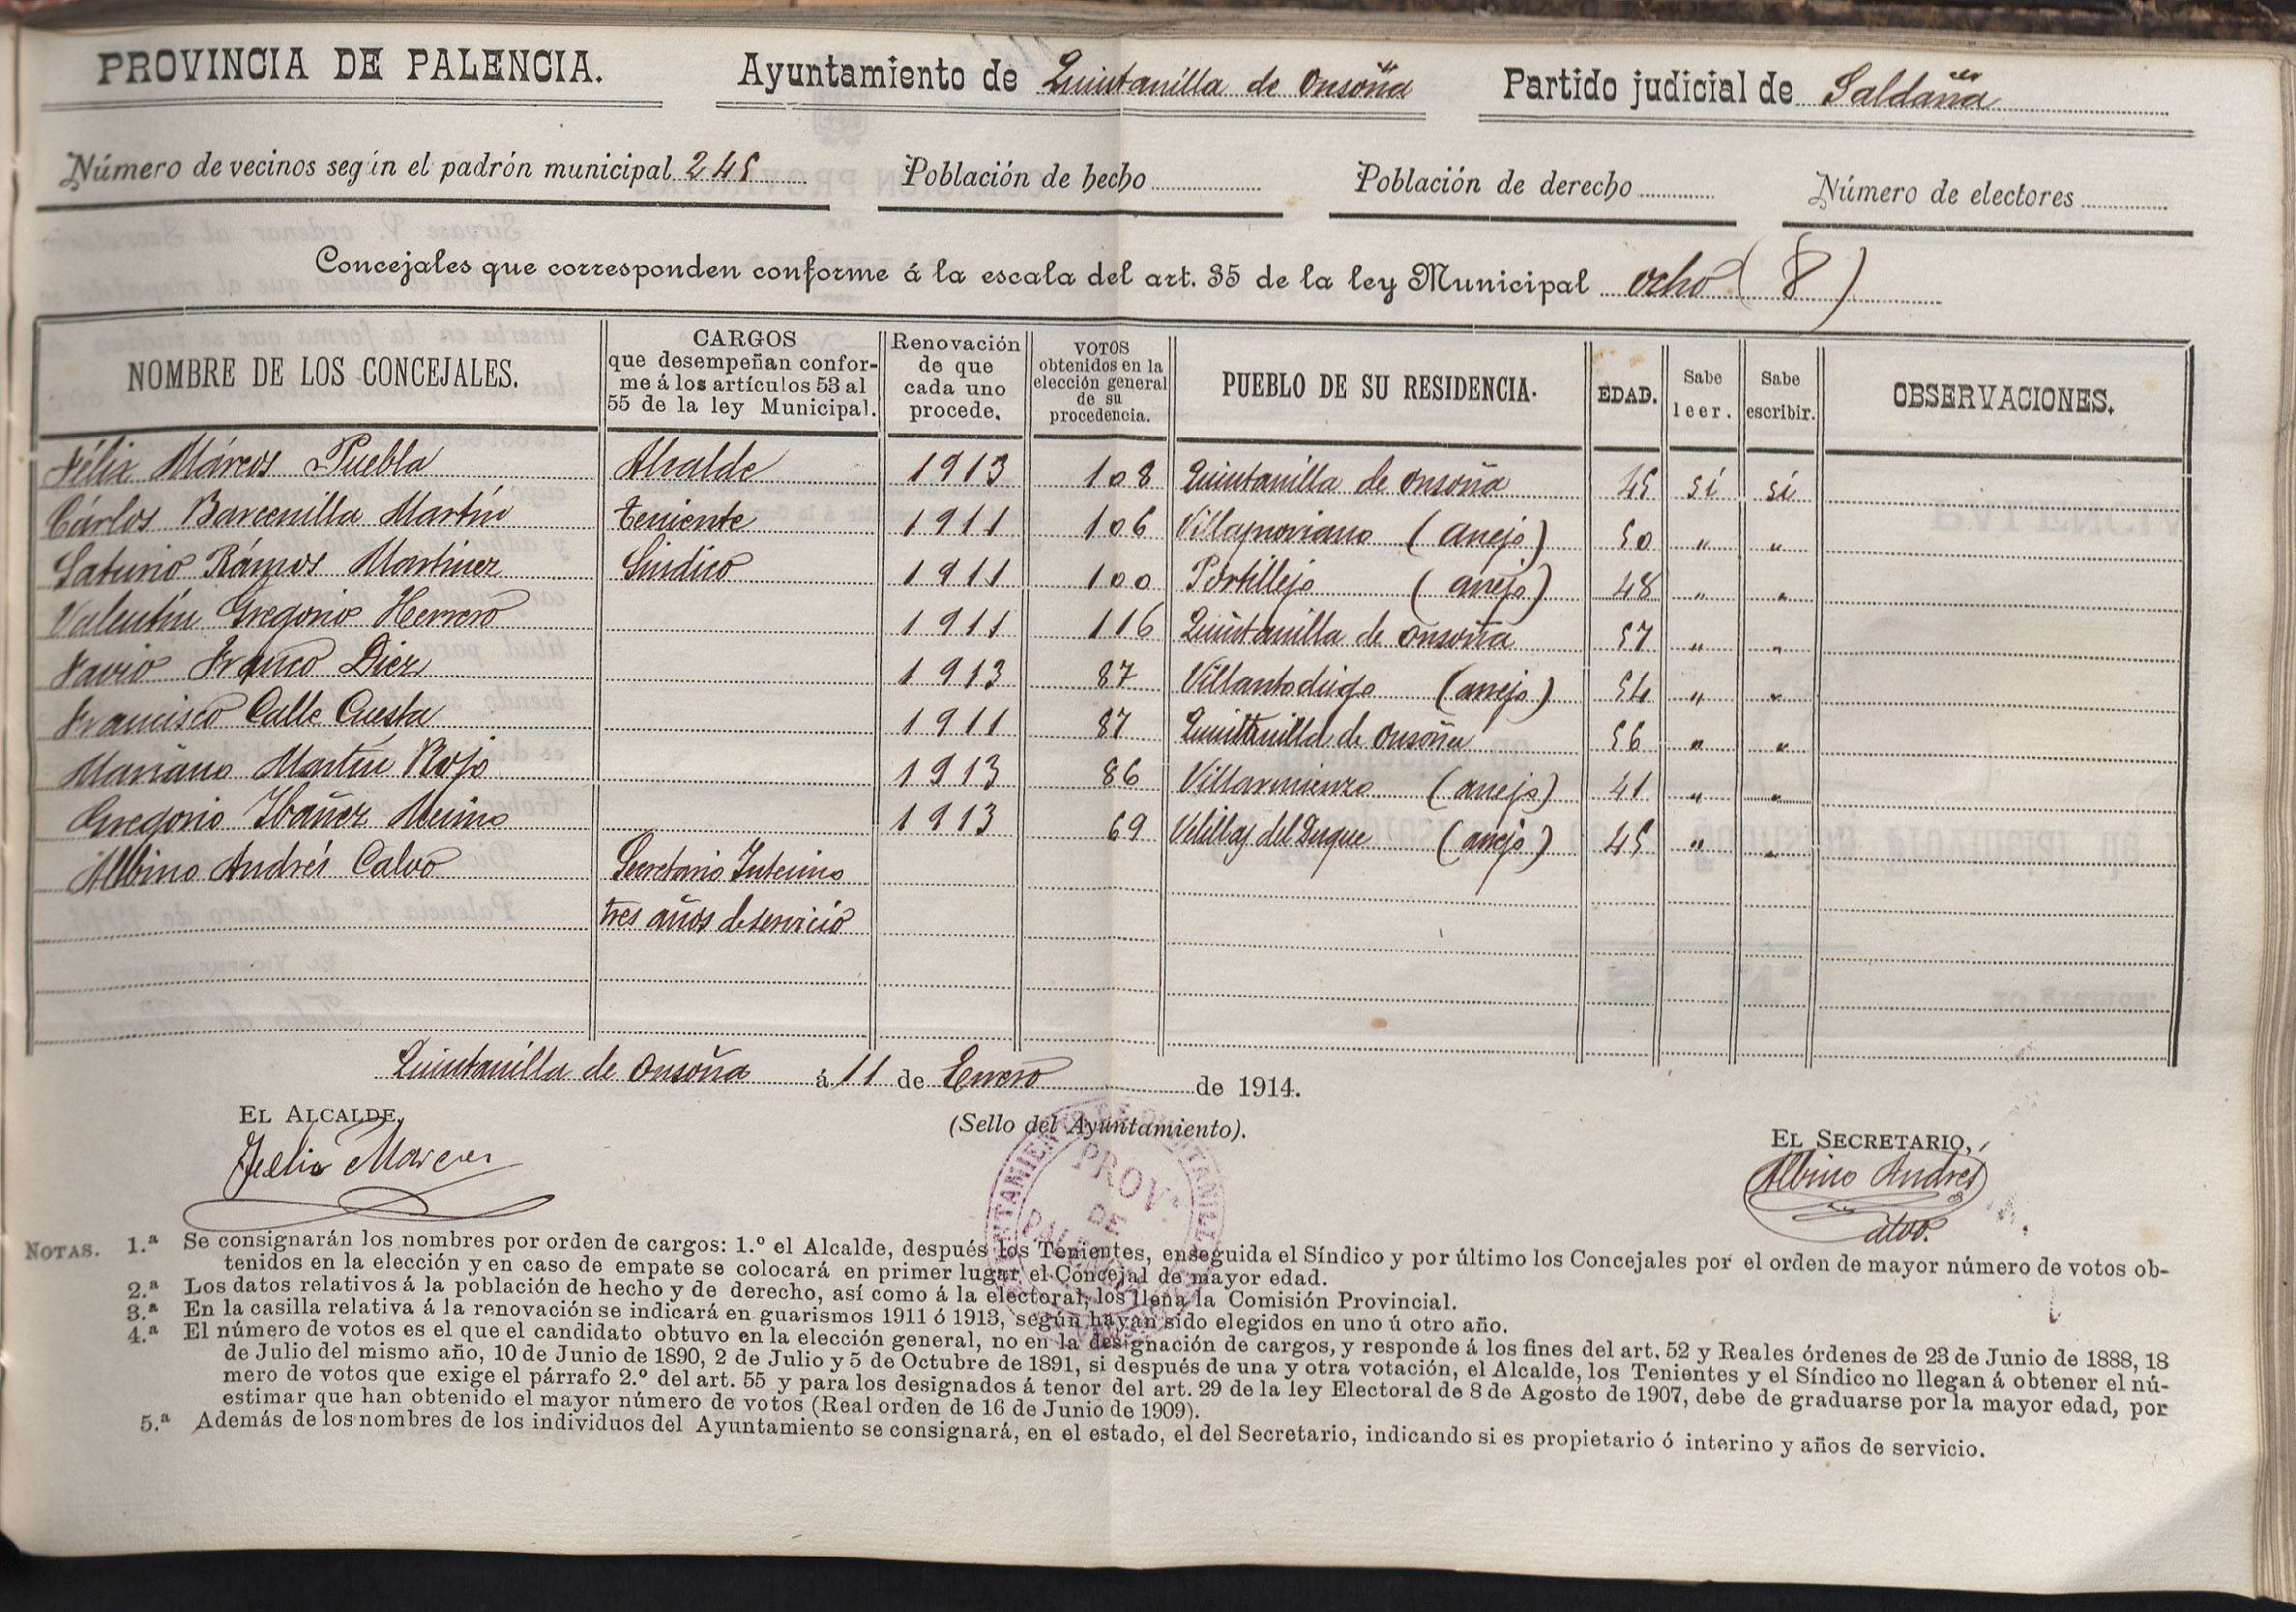 PROVINCIA DE PALENCIA. Ayuntamiento de Quintanilla de Onsoña Partido judicial de Saldaña
Número de vecinos según el padrón municipal 245 Población de hecho Población de derecho Número de electores
Concejales que corresponden conforme á la escala del art. 35 de la ley Municipal ocho (8)
NOMBRE DE LOS CONCEJALES. CARGOS que desempeñan conforme á los artículos 53 al 55 de la ley Municipal. Renovación de que cada uno procede. VOTOS obtenidos en la elección general de su procedencia. PUEBLO DE SU RESIDENCIA. EDAD. Sabe leer. Sabe escribir. OBSERVACIONES.
Félix Márcos Puebla Alcalde 1913 108 Quintanilla de Onsoña 45 sí sí
Cárlos Barcenilla Martín Teniente 1911 106 Villaproviano (anejo) 50 " "
Saturio Rámos Martinez Sindico 1911 100 Portillejo (anejo) 48 " "
Valentín Gregorio Herrero 1911 116 Quintanilla de Onsoña 57 " "
Favio Franco Diez 1913 87 Villantodrigo (anejo) 54 " "
Francisco Calle Cuesta 1911 87 Quintanilla de Onsoña 56 " "
Mariano Martín Rojo 1913 86 Villarmienzo (anejo) 41 " "
Gregorio Ibañez Merino 1913 69 Velillas del Duque (anejo) 45 " "
Albino Andrés Calvo Secretario Interino
tres años de servicio
Quintanilla de Onsoña á 11 de Enero de 1914.
EL ALCALDE, (Sello del Ayuntamiento). EL SECRETARIO,
Felix Marcos Albino Andres
Calvo
PROV.
DE
NOTAS. 1.ª Se consignarán los nombres por orden de cargos: 1.º el Alcalde, después los Tenientes, enseguida el Síndico y por último los Concejales por el orden de mayor número de votos ob-
tenidos en la elección y en caso de empate se colocará en primer lugar el Concejal de mayor edad.
2.ª Los datos relativos á la población de hecho y de derecho, así como á la electoral, los llena la Comisión Provincial.
3.ª En la casilla relativa á la renovación se indicará en guarismos 1911 ó 1913, según hayan sido elegidos en uno ú otro año.
4.ª El número de votos es el que el candidato obtuvo en la elección general, no en la designación de cargos, y responde á los fines del art. 52 y Reales órdenes de 23 de Junio de 1888, 18
de Julio del mismo año, 10 de Junio de 1890, 2 de Julio y 5 de Octubre de 1891, si después de una y otra votación, el Alcalde, los Tenientes y el Síndico no llegan á obtener el nú-
mero de votos que exige el párrafo 2.º del art. 55 y para los designados á tenor del art. 29 de la ley Electoral de 8 de Agosto de 1907, debe de graduarse por la mayor edad, por
estimar que han obtenido el mayor número de votos (Real orden de 16 de Junio de 1909).
5.ª Además de los nombres de los individuos del Ayuntamiento se consignará, en el estado, el del Secretario, indicando si es propietario ó interino y años de servicio.